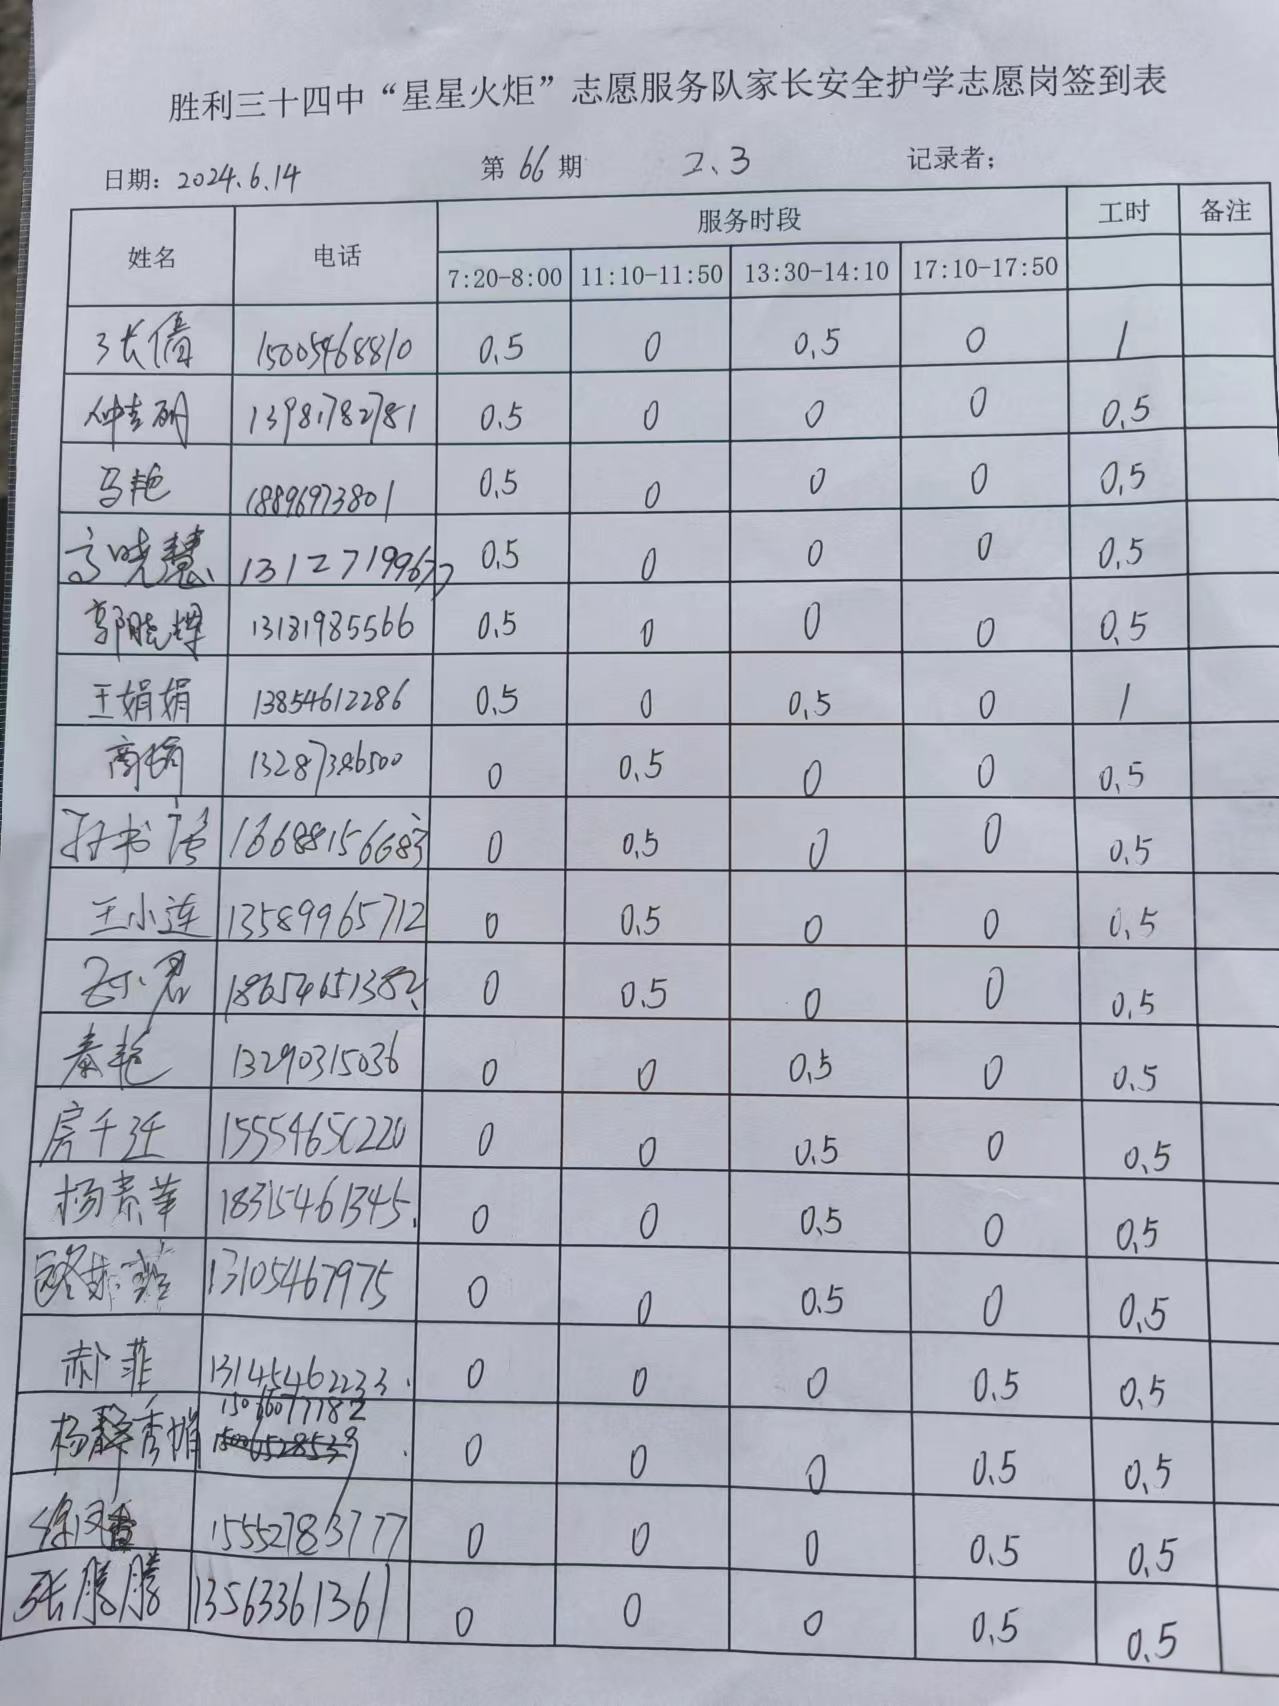 胜利三十四中“星星火炬”志愿服务队家长安全护学志愿岗签到表
日期: 2024.6.14 第 66 期 2、3 记录者;
姓名 电话 服务时段 工时 备注
7:20-8:00 11:10-11:50 13:30-14:10 17:10-17:50
张倩 15005468810 0.5 0 0.5 0 1
0.5 0 0 0 0.5
马艳 18896973801 0.5 0 0 0 0.5
高晓慧 0.5 0 0 0 0.5
郭晓辉 13181985566 0.5 0 0 0 0.5
王娟娟 13854612286 0.5 0 0.5 0 1
0 0.5 0 0 0.5
0 0.5 0 0 0.5
王小连 13589965712 0 0.5 0 0 0.5
18654651382 0 0.5 0 0 0.5
秦艳 13290315036 0 0 0.5 0 0.5
房千 15554650220 0 0 0.5 0 0.5
杨素苹 18315461345 0 0 0.5 0 0.5
13105467975 0 0 0.5 0 0.5
郝菲 13145462233 0 0 0 0.5 0.5
0 0 0 0.5 0.5
15552783777 0 0 0 0.5 0.5
张腾腾 13563361361 0 0 0 0.5 0.5